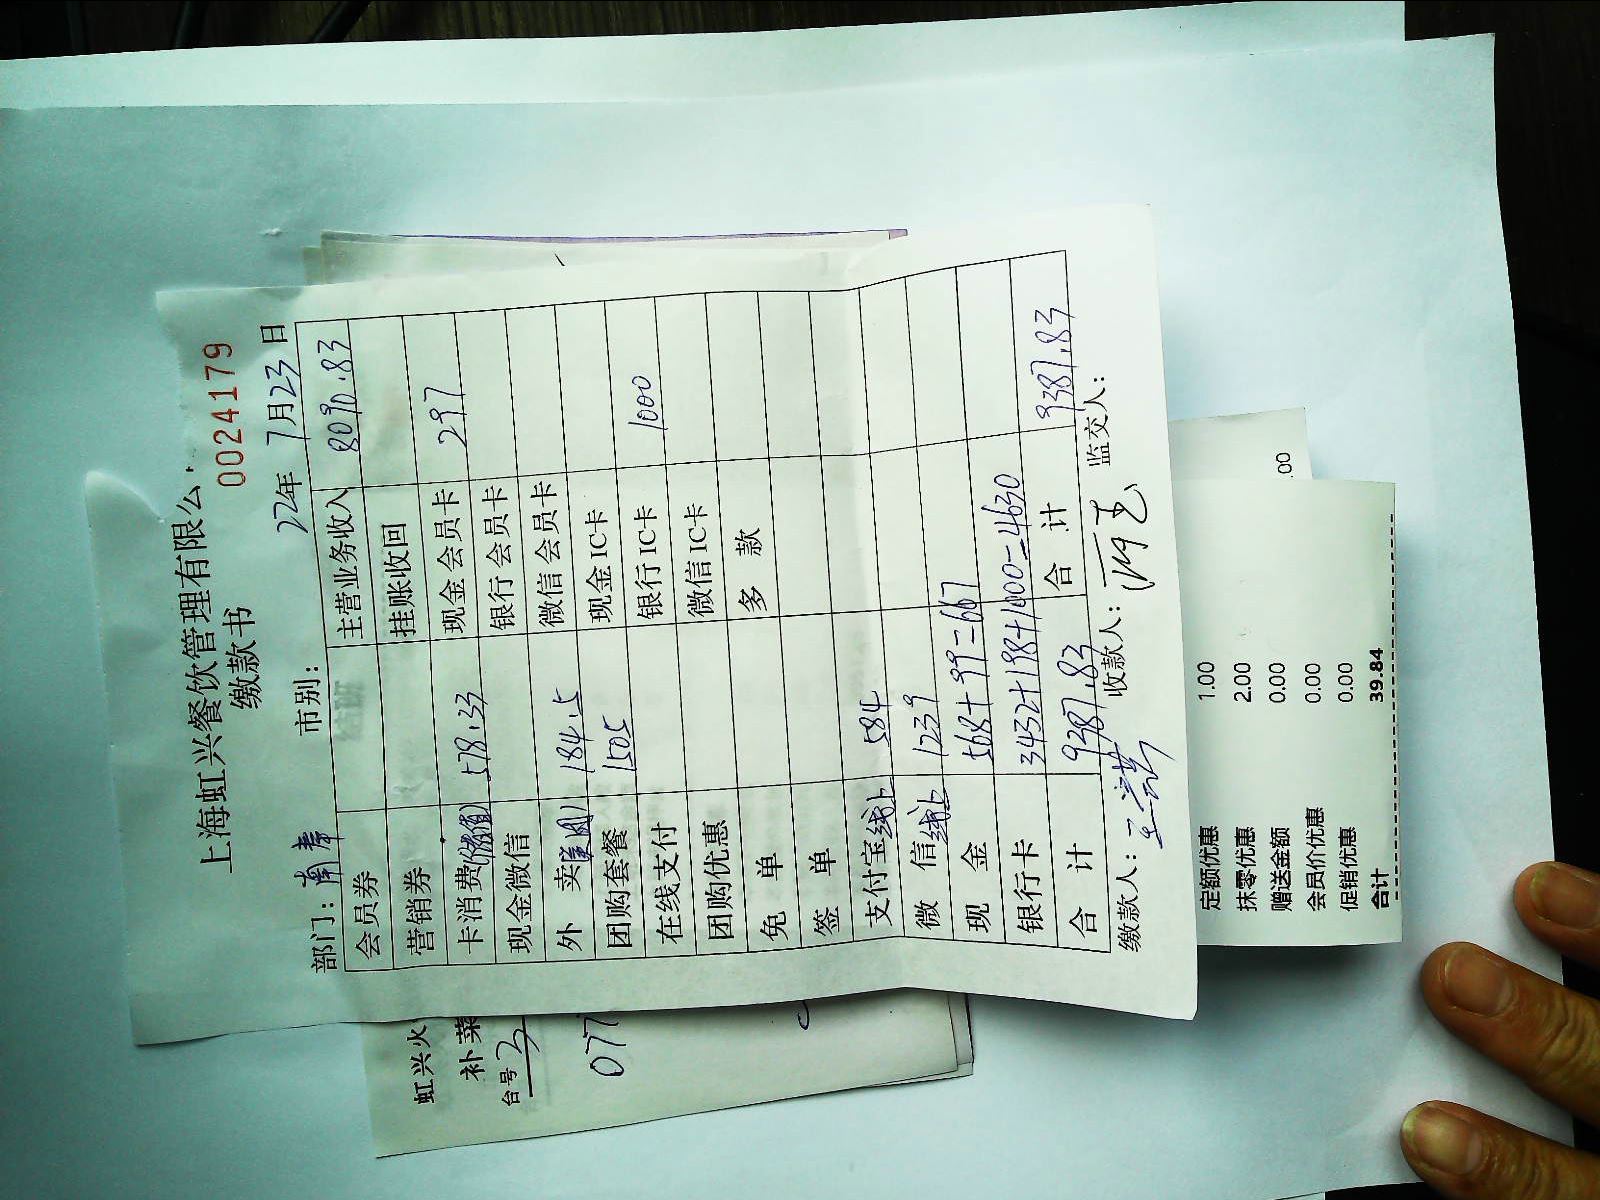 上海虹兴餐饮管理有限公
缴款书
0024179
部门: 市别: 22年 7月23日
会员券 主营业务收入 8090.83
营销券 挂账收回
卡消费 578.33 现金会员卡 297
现金微信 银行会员卡
外 卖 184.5 微信会员卡
团购套餐 1505 现金IC卡
在线支付 银行IC卡 1000
团购优惠 微信IC卡
免 单 多 款
签 单
支付宝线上 584
微 信线上 1239
现 金 568+99=667
银行卡 3432+198+1000=4630
合 计 9387.83 合 计 9387.83
缴款人: 收款人: 监交人:
虹兴火
补菜
台号 3
077
.00
定额优惠 1.00
抹零优惠 2.00
赠送金额 0.00
会员价优惠 0.00
促销优惠 0.00
合计 39.84